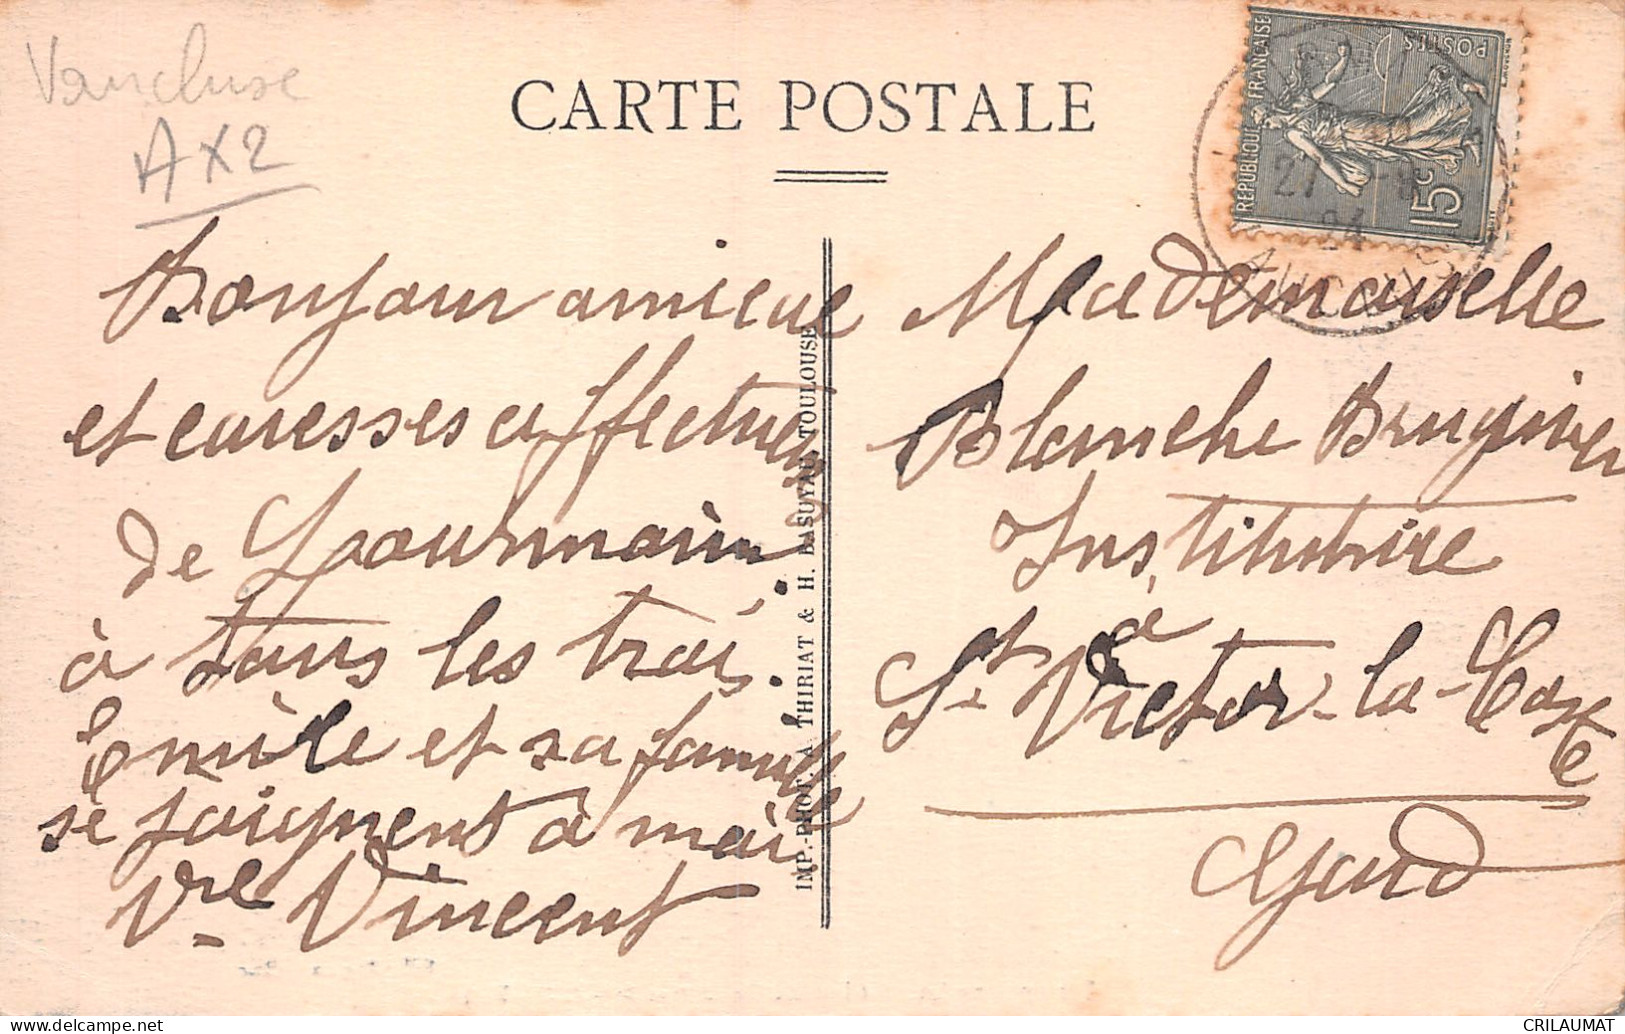 Vaucluse
AX2
CARTE POSTALE
REPUBLIQUE FRANÇAISE
POSTES
15c
27 -8
24
VAUCLUSE
Bonjour amical
et caresses affectueuses
de Lourmarin
à tous les trois.
Emile et sa famille
se joignent à moi
Vve Vincent
IMP.-PHOT. A. THIRIAT & H. BASUYAU, TOULOUSE
Mademoiselle
Blanche Bruguier
Institutrice
à
St Victor-la-Coste
Gard
CRILAUMAT